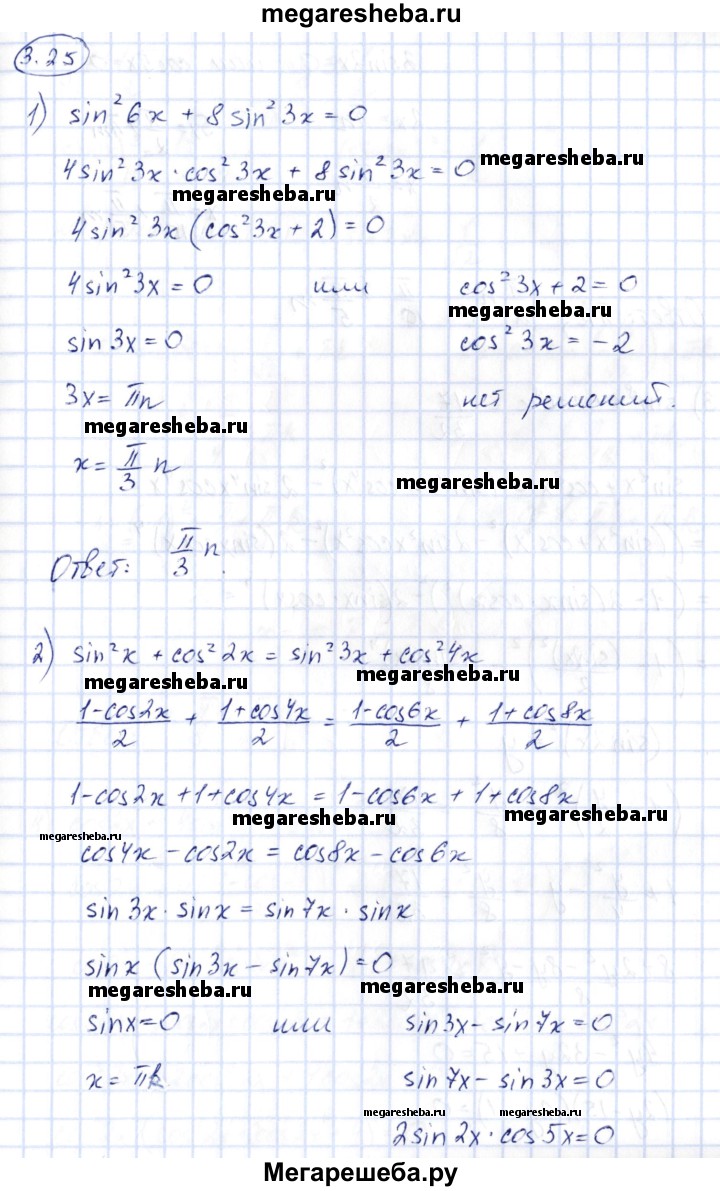 megaresheba.ru
3.25
1) sin² 6x + 8 sin² 3x = 0
4 sin² 3x · cos² 3x + 8 sin² 3x = 0 megaresheba.ru
megaresheba.ru
4 sin² 3x (cos² 3x + 2) = 0
4 sin² 3x = 0 или cos² 3x + 2 = 0
megaresheba.ru
sin 3x = 0 cos² 3x = -2
3x = πn нет решений.
megaresheba.ru
x = π/3 n megaresheba.ru
Ответ: π/3 n.
2) sin² x + cos² 2x = sin² 3x + cos² 4x
megaresheba.ru megaresheba.ru
(1-cos2x)/2 + (1+cos4x)/2 = (1-cos6x)/2 + (1+cos8x)/2
1-cos2x+1+cos4x = 1-cos6x+1+cos8x
megaresheba.ru megaresheba.ru megaresheba.ru
cos4x - cos2x = cos8x - cos6x
sin 3x · sin x = sin 7x · sin x
sin x (sin 3x - sin 7x) = 0
megaresheba.ru megaresheba.ru
sin x = 0 или sin 3x - sin 7x = 0
x = πk sin 7x - sin 3x = 0
megaresheba.ru megaresheba.ru
2 sin 2x · cos 5x = 0
Мегарешеба.ру